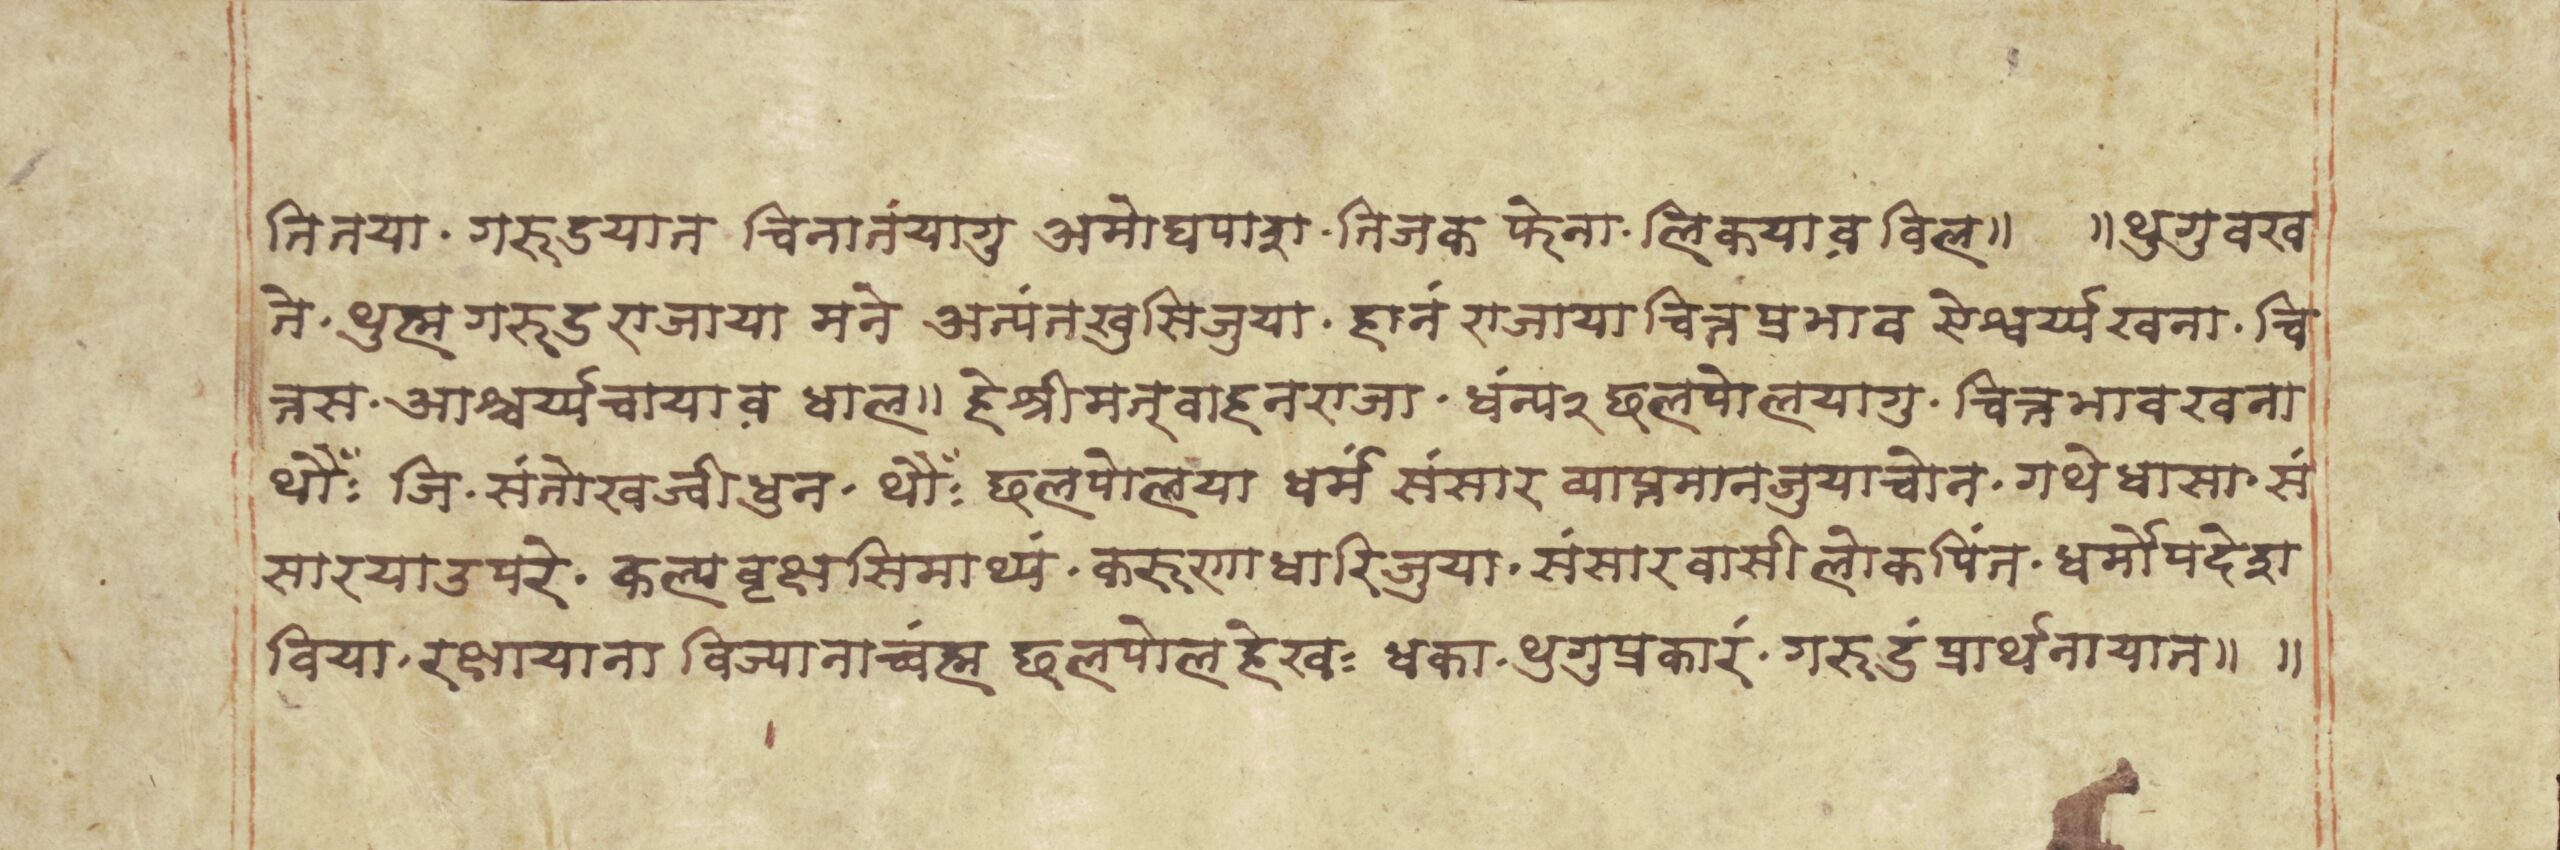 तितया· गरूडयात चिनातंयागु अमोघपाश· तिजक फेना· लिकयाव़ विल॥ ॥थुगुवख
ते· थुह्म गरूड राजाया मने अत्यंतखुसिजुया· हानं राजाया चित्तप्रभाव ऐश्वर्य्य खना· चि
त्तस· आश्चर्य्यचायाव़ धाल॥ हेश्रीमत्वाहनराजा· धंन्य२ छलपोलयागु· चित्तभावखना
थौँः जि· संतोखज्वीधुन· थौँः छलपोलया धर्म संसार व्याप्तमानजुयाच्वोन· गथेधासा· सं
सारयाउपरे· कल्पवृक्षसिमाथ्यं· करूणाधारिजुया· संसारवासीलोकपिंत· धर्मोपदेश
विया· रक्षायाना विज्यानाच्वंह्म छलपोलहेखः धका· थुगुप्रकारं· गरूडंप्रार्थनायात॥ ॥